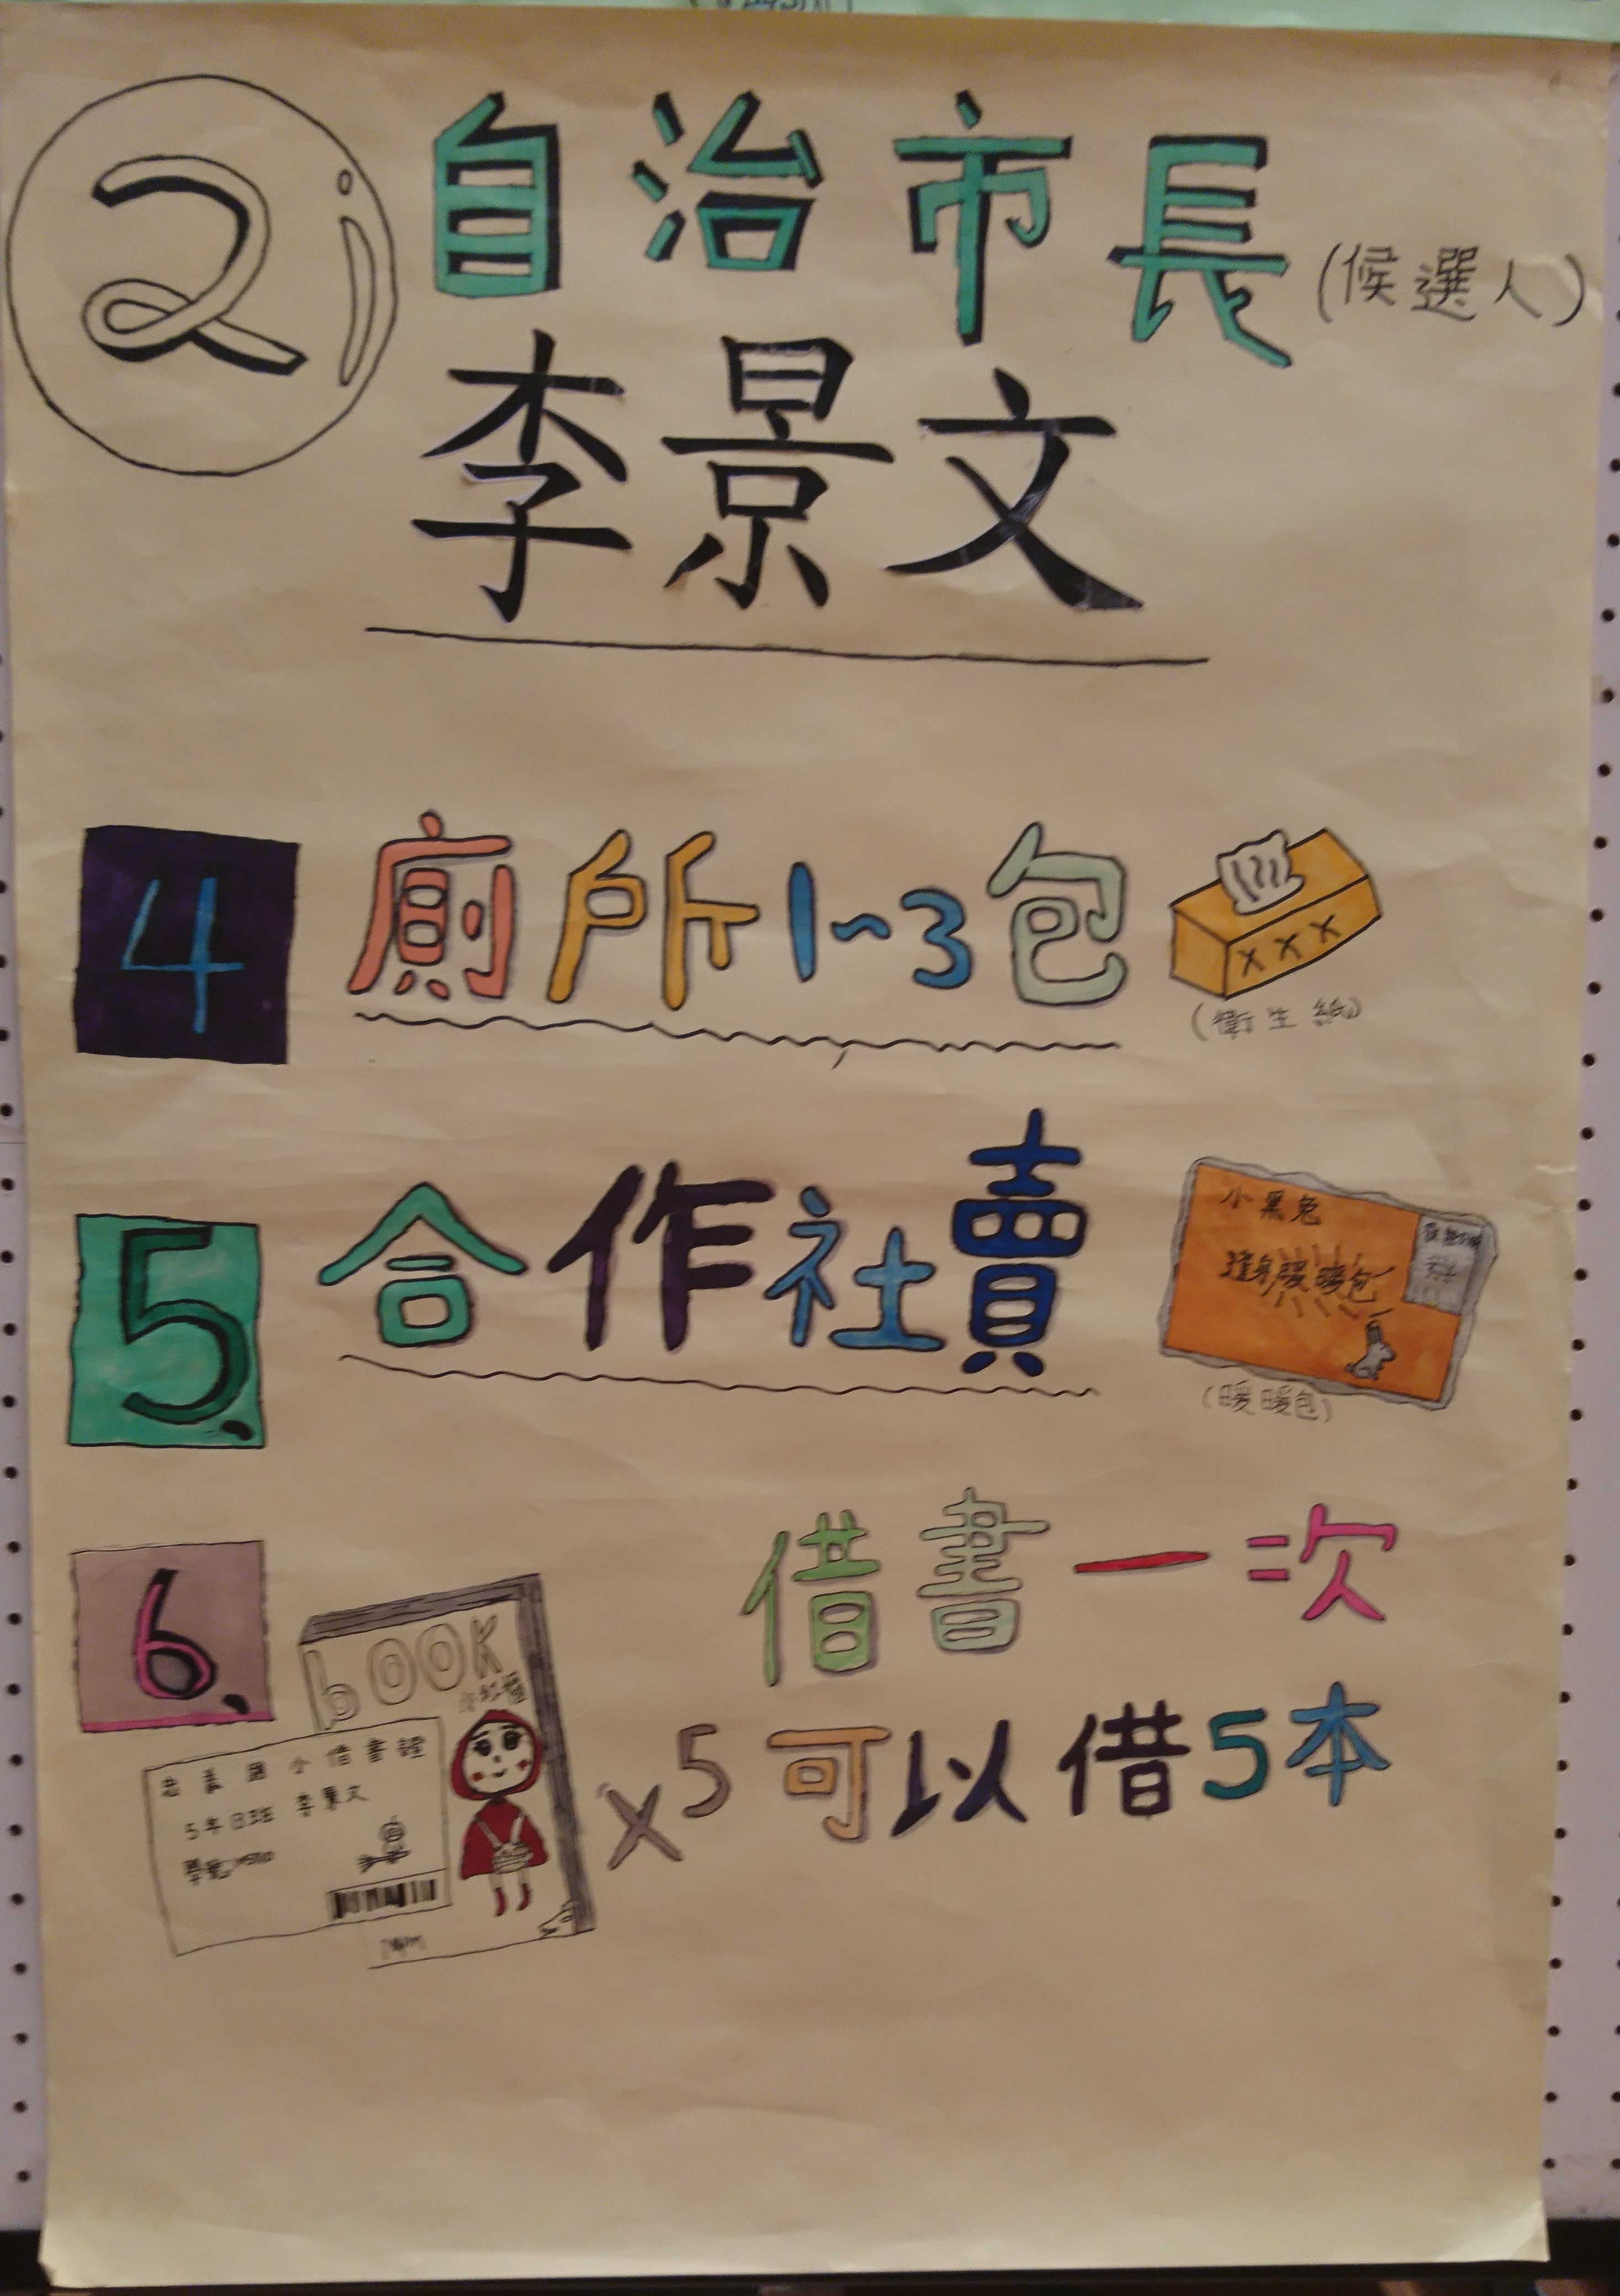 2
自治市長(候選人)
李景文
4 廁所1~3包
(衛生紙)
5. 合作社賣
小黑兔
暖暖包
(暖暖包)
6、
借書一次
x5 可以借5本
BOOK
小紅帽
國小借書證
5年 班 李景文